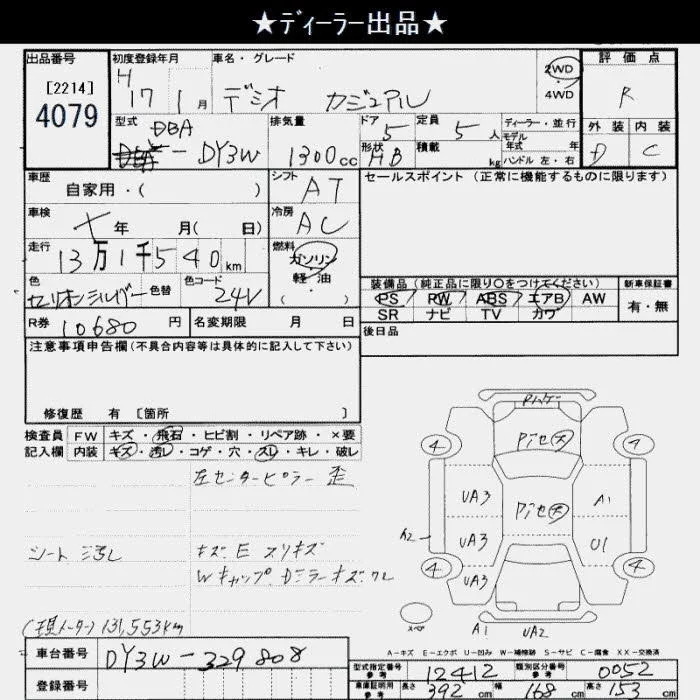 ★ディーラー出品★
出品番号
[2214]
4079
初度登録年月
H 17 1月
車名・グレード
デミオ カジュアル
2WD
4WD
評価点
R
外装 内装
D C
型式
DBA
DBA-DY3W
排気量
1300cc
ドア
5
形状
HB
定員
5人
積載 kg
ディーラー・並行
モデル
年式 年
ハンドル 左・右
車歴
自家用・( )
シフト
AT
セールスポイント (正常に機能するものに限ります)
車検
年 月( 日)
冷房
AC
走行
13万1千540km
燃料
ガソリン
軽油
( ・ )
色
色替
色コード
24V
装備品 (純正品に限り○をつけてください)
PS PW ABS エアB AW
SR ナビ TV カワ
新車保証書
有・無
R券 10680円
名変期限 月 日
後日品
注意事項申告欄(不具合内容等は具体的に記入して下さい)
修復歴 有 [箇所 ]
検査員 FW キズ・飛石・ヒビ割・リペア跡・×要
記入欄 内装 キズ・汚レ・コゲ・穴・スレ・キレ・破レ
左センターピラー 歪
シート 汚レ
キズE スリキズ
Wキャップ Dミラーキズワレ
(現メーター) 131,553km
4
7
4
4
UA3
UA3
UA3
A1
U1
A2
スペア
A1
UA2
A-キズ E-エクボ U-凹み W-補修跡 S-サビ C-腐食 XX-交換済
車台番号
DY3W-329808
登録番号
型式指定番号
参考
12412
類別区分番号
参考
0052
車庫証明用
参考
長さ 392 cm 幅 168 cm 高さ 153 cm